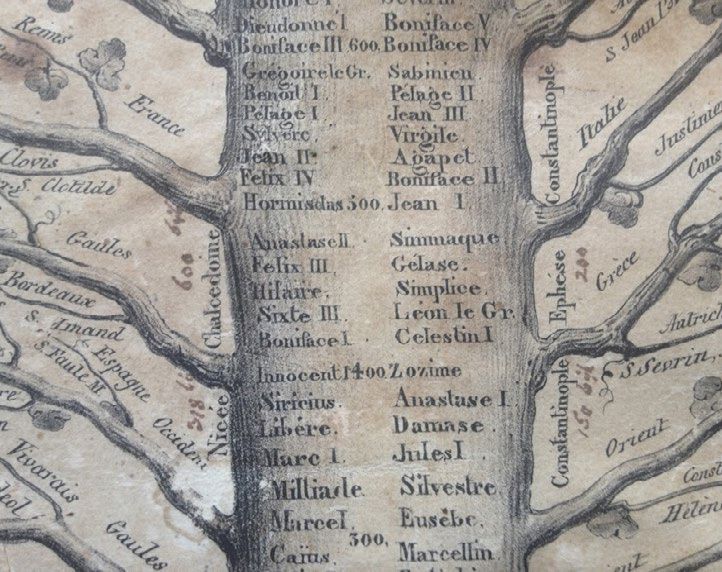 Honoré I Severin
Dieudonné I Boniface V
Boniface III 600. Boniface IV
Grégoire le Gr. Sabinien
Benoît I. Pélage II
Pélage I Jean III
Sylvère Virgile
Jean II Agapet
Felix IV Boniface II
Hormisdas 500. Jean I.
Anastase II. Simmaque
Felix III. Gélase.
Hilaire. Simplice.
Sixte III. Léon le Gr.
Boniface I. Celestin I
Innocent I 400 Zozime
Siricius. Anastase I.
Libère. Damase.
Marc I. Jules I
Milliade. Silvestre.
Marcel. Eusèbe.
300.
Caïus. Marcellin.
Reims
France
Clovis
S. Clotilde
Gaules
Bordeaux
S. Amand
Espagne
S. Faule M.
Occident
Vivarais
Gaules
Chalcedoine
600
Nicée
318
Constantinople
Ephese
200
Constantinople
150
S Jean l'
Italie
Justinie
Cons
Grèce
Autrich
S. Sevrin,
Orient
Const
Hélène